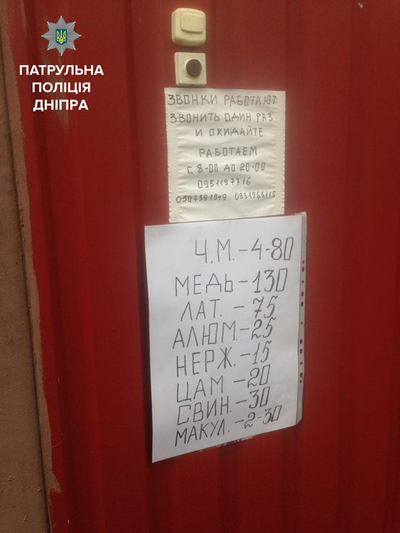 ПАТРУЛЬНА
ПОЛІЦІЯ
ДНІПРА
ЗВОНКИ РАБОТАЮТ
ЗВОНИТЬ ОДИН РАЗ
И ОЖИДАЙТЕ
РАБОТАЕМ
С 8-00 ДО 20-00
0951197716
Ч.М.-4-80
МЕДЬ-130
ЛАТ.-75
АЛЮМ-25
НЕРЖ.-15
ЦАМ-20
СВИН.-30
МАКУЛ.-2-30